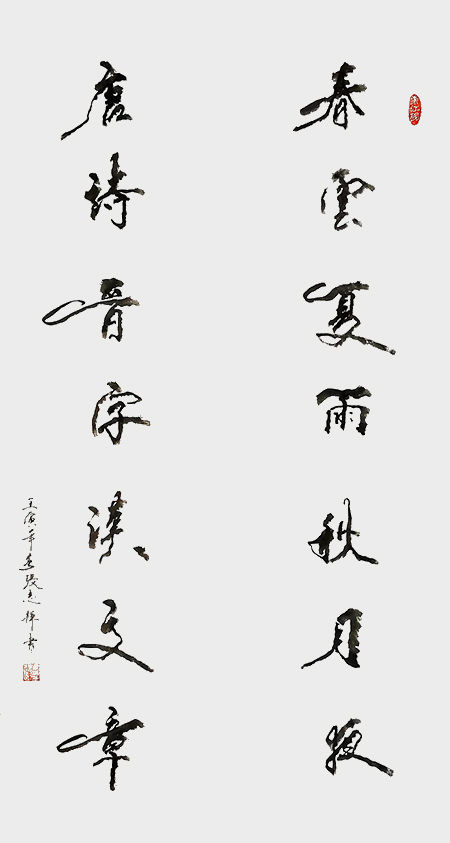 春雲夏雨秋月夜
唐詩晉字漢文章
壬寅年冬張志輝書